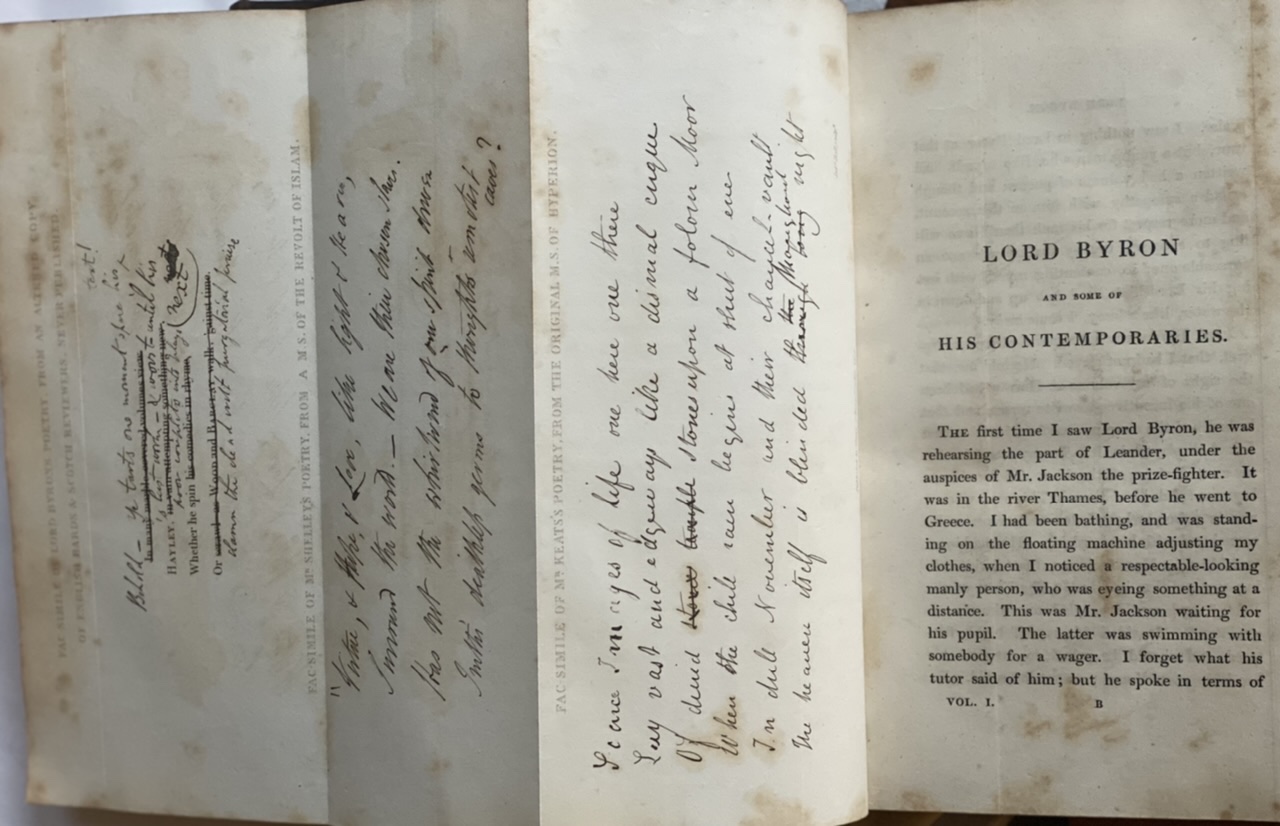 FAC SIMILE OF LORD BYRON'S POETRY, FROM AN ALTERED COPY,
OF ENGLISH BARDS & SCOTCH REVIEWERS, NEVER PUBLISHED.
text!
Behold – ye tarts one moment spare his
In many marble-covered volumes view
's last work – & worst – until his next
HAYLEY, in vain attempting something new
from couplets into plays
Whether he spin his comedies in rhyme,
Or scrawl as Wood and Barclay walk, 'gainst time,
damn the dead with purgatorial praise
FAC SIMILE OF Mr SHELLEY'S POETRY, FROM A M S. OF THE REVOLT OF ISLAM.
"Virtue, & Hope, & Love, like light & Heaven,
Surround the world.—We are their chosen slaves.
Has not the whirlwind of our spirit driven
Truth's deathless germs to thought's remotest
caves?
FAC SIMILE OF Mr KEATS'S POETRY, FROM THE ORIGINAL M.S. OF HYPERION.
Scarce Images of life one here one there
Lay vast and edgeways like a dismal cirque
Of druid stones temple stones upon a folorn Moor
When the chill rain begins at shut of eve
In dull November and their chancel-vault
the throughout
the heaven itself is blinded through long night
LORD BYRON
AND SOME OF
HIS CONTEMPORARIES.
THE first time I saw Lord Byron, he was
rehearsing the part of Leander, under the
auspices of Mr. Jackson the prize-fighter. It
was in the river Thames, before he went to
Greece. I had been bathing, and was stand-
ing on the floating machine adjusting my
clothes, when I noticed a respectable-looking
manly person, who was eyeing something at a
distance. This was Mr. Jackson waiting for
his pupil. The latter was swimming with
somebody for a wager. I forget what his
tutor said of him; but he spoke in terms of
VOL. I. B